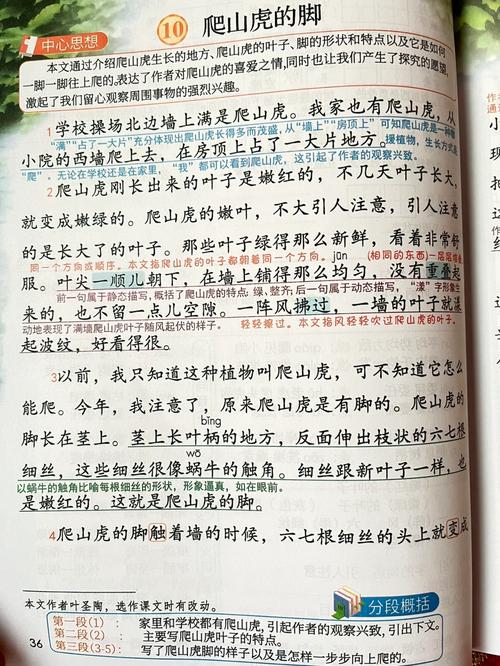 10 爬山虎的脚
中心思想
本文通过介绍爬山虎生长的地方、爬山虎的叶子、脚的形状和特点以及它是如何
一脚一脚往上爬的。表达了作者对爬山虎的喜爱之情,同时也让我们产生了探究的愿望,
激起了我们留心观察周围事物的强烈兴趣。
1学校操场北边墙上满是爬山虎。我家也有爬山虎,从
“满”“占了一大片”充分体现出爬山虎长得多而茂盛,从“墙上”“房顶上”可知爬山虎是一种攀
小院的西墙爬上去,在房顶上占了一大片地方。
援植物,生长方式
“爬”。无论在学校还是在家里,“我”都可以看到爬山虎,这引起了作者的观察兴致。
2爬山虎刚长出来的叶子是嫩红的,不几天叶子长大,
就变成嫩绿的。爬山虎的嫩叶,不大引人注意,引人注意
的是长大了的叶子。那些叶子绿得那么新鲜,看着非常舒
同一个方向或顺序。本文指爬山虎的叶子都朝着同一个方向。
jūn
(相同的东西)一层层
服。叶尖一顺儿朝下,在墙上铺得那么均匀,没有重叠起
前一句属于静态描写,概括了爬山虎的特点:绿,整齐;后一句属于动态描写,“漾”字形象生
来的,也不留一点儿空隙。一阵风拂过,一墙的叶子就漾
动地表现了满墙爬山虎叶子随风起伏的样子。
轻轻擦过。本文指风轻轻吹过爬山虎的叶子。
起波纹,好看得很。
3以前,我只知道这种植物叫爬山虎,可不知道它怎么
能爬。今年,我注意了,原来爬山虎是有脚的。爬山虎的
bǐng
脚长在茎上。茎上长叶柄的地方,反面伸出枝状的六七根
wō
细丝,这些细丝很像蜗牛的触角。细丝跟新叶子一样,也
以蜗牛的触角比喻每根细丝的形状,形象逼真,如在眼前。
是嫩红的。这就是爬山虎的脚。
4爬山虎的脚触着墙的时候,六七根细丝的头上就变成
本文作者叶圣陶,选作课文时有改动。
分段概括
第一段(1):家里和学校都有爬山虎,引起作者的观察兴致,引出下文。
第二段(2):主要写爬山虎叶子的特点。
第三段(3-5):写了爬山虎脚的样子以及是怎样一步步向上爬的。
36